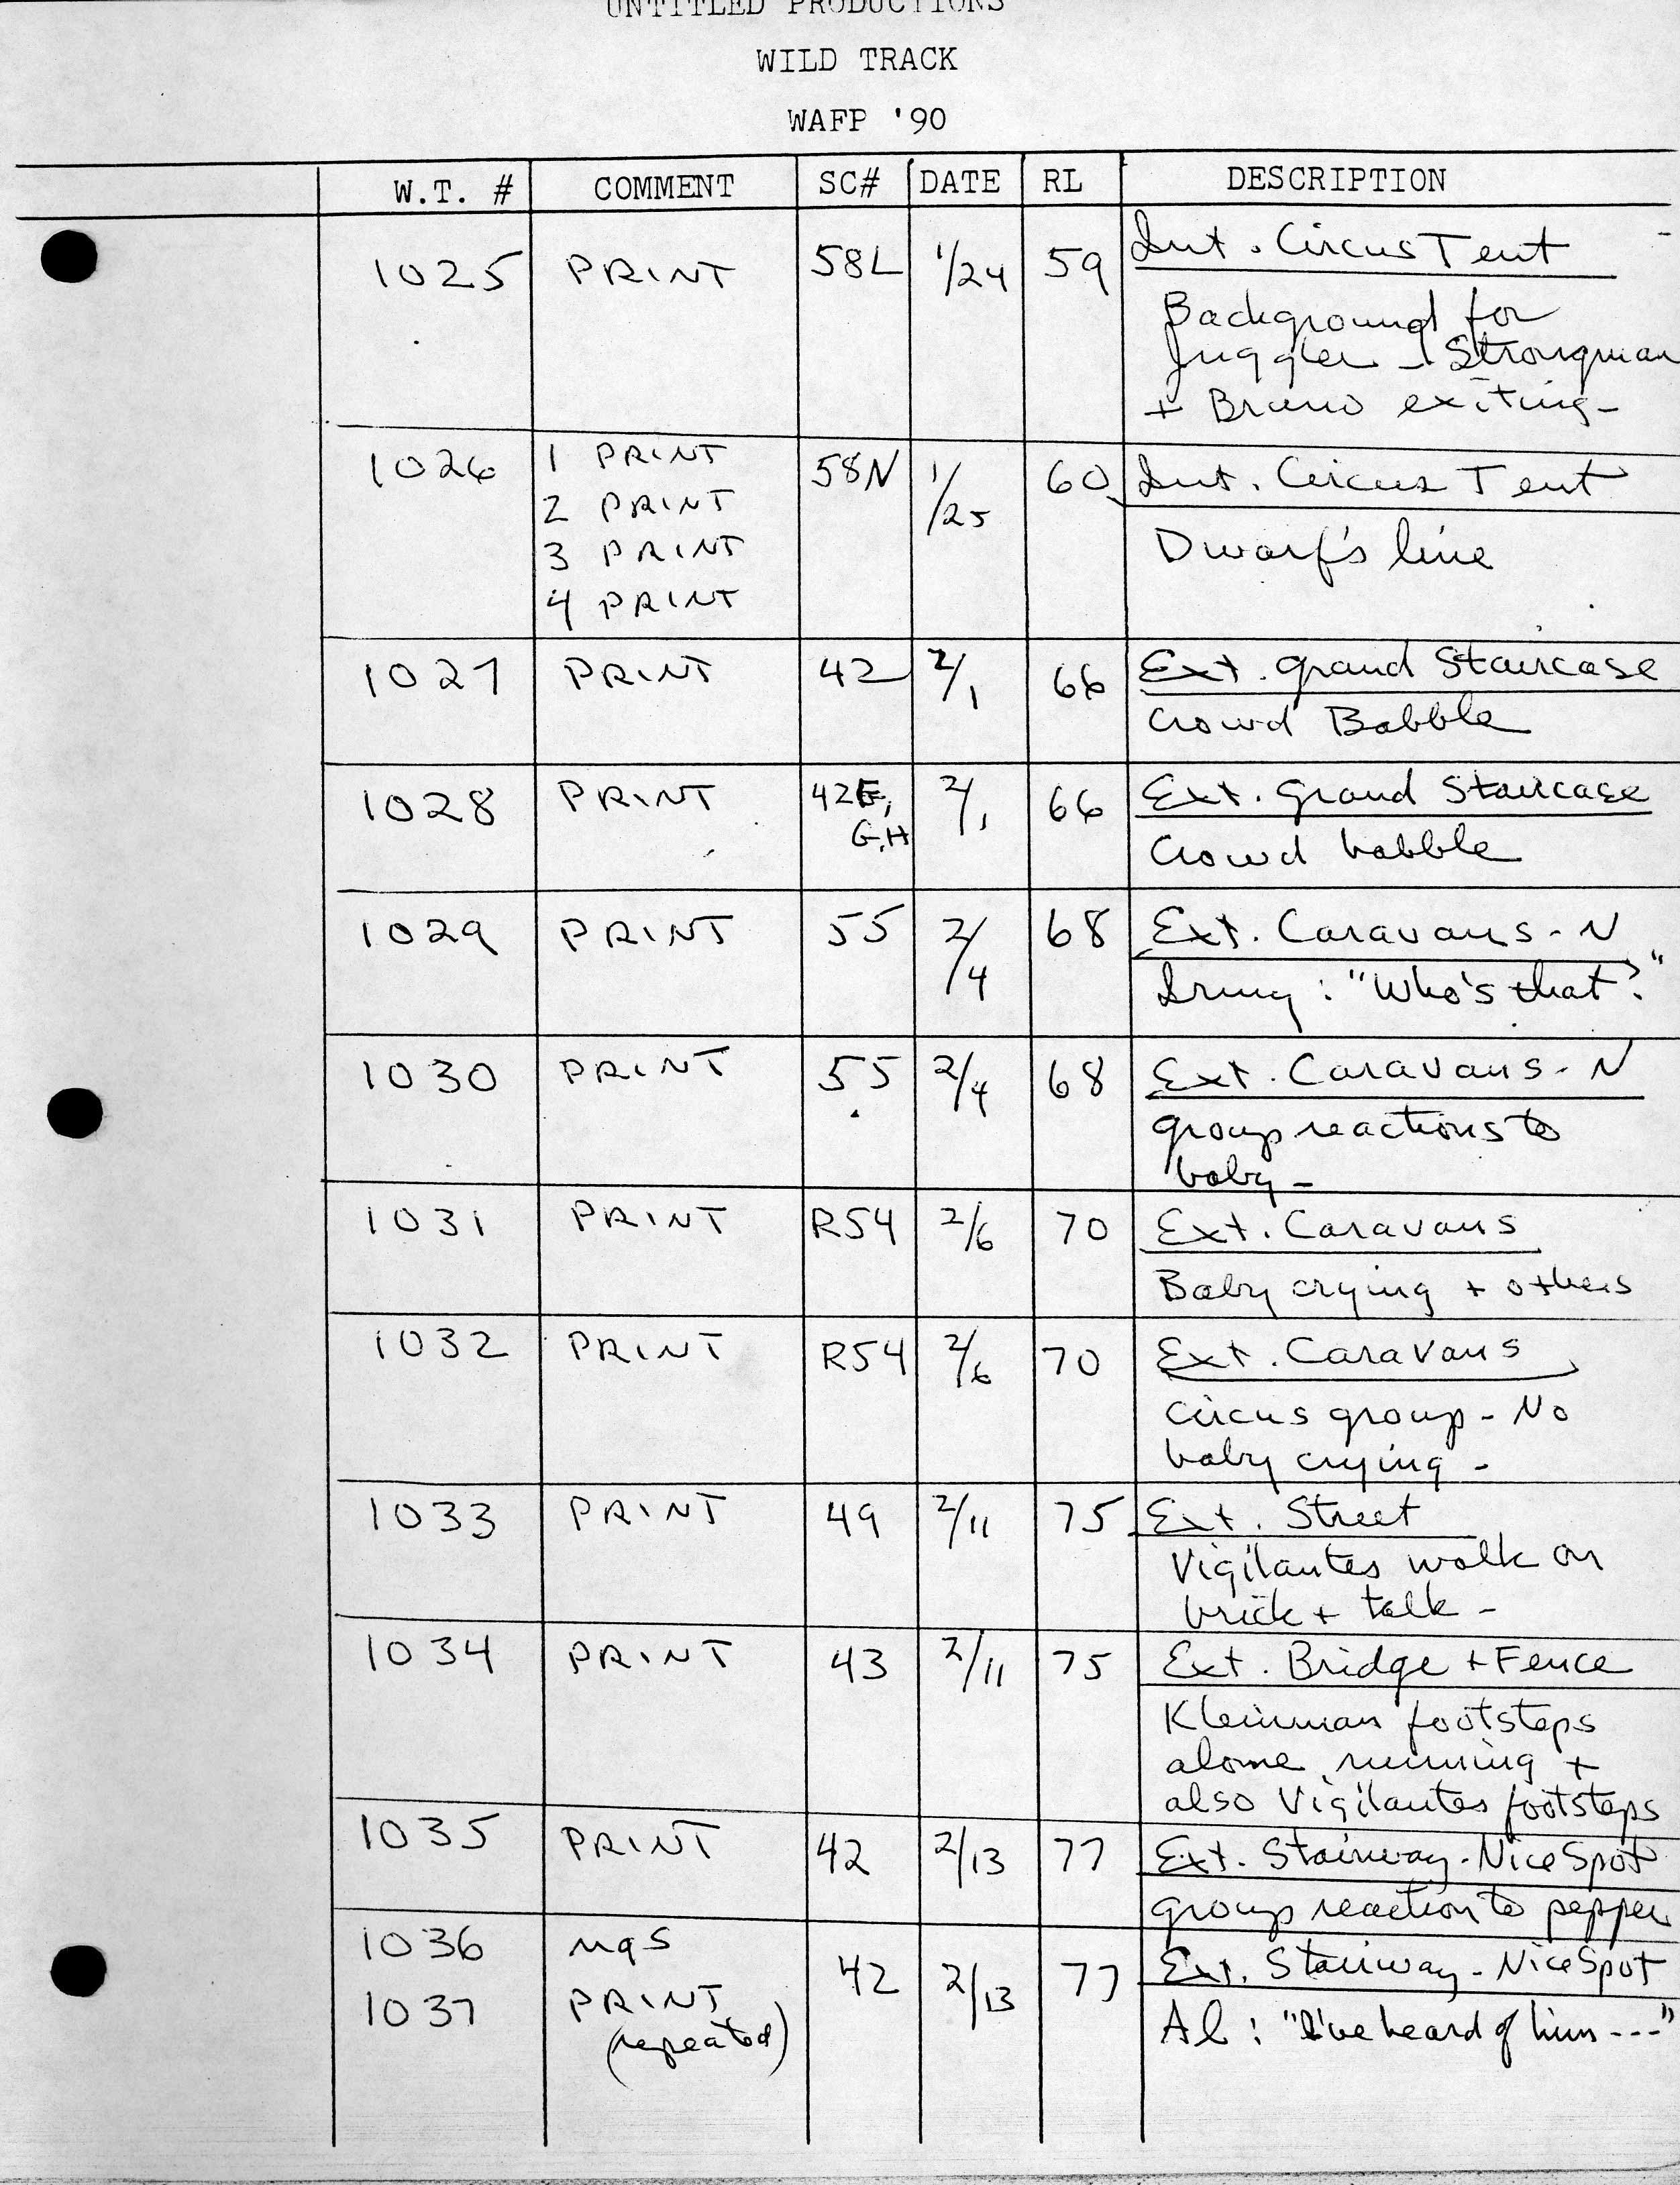 UNTITLED PRODUCTIONS
WILD TRACK
WAFP '90
W.T. # COMMENT SC# DATE RL DESCRIPTION
1025 PRINT 58L 1/24 59 Int. Circus Tent
Background for
Juggler - Strongman
+ Bruno exiting-
1026 1 PRINT 58N 1/25 60 Int. Circus Tent
2 PRINT
3 PRINT Dwarf's line
4 PRINT
1027 PRINT 42 2/1 66 Ext. Grand Staircase
Crowd Babble
1028 PRINT 42E, 2/1 66 Ext. Grand Staircase
G,H Crowd babble
1029 PRINT 55 2/4 68 Ext. Caravans - N
Irmy : "Who's that?"
1030 PRINT 55 2/4 68 Ext. Caravans - N
group reactions to
baby -
1031 PRINT R54 2/6 70 Ext. Caravans
Baby crying + others
1032 PRINT R54 2/6 70 Ext. Caravans
Circus group - No
baby crying -
1033 PRINT 49 2/11 75 Ext. Street
Vigilantes walk on
brick + talk -
1034 PRINT 43 2/11 75 Ext. Bridge + Fence
Kleinman footsteps
alone, running +
also Vigilantes footsteps
1035 PRINT 42 2/13 77 Ext. Stairway - Nice Spot
group reaction to pepper
1036 ngs 42 2/13 77 Ext. Stairway - Nice Spot
1037 PRINT Al : "I've heard of him ---"
(repeated)